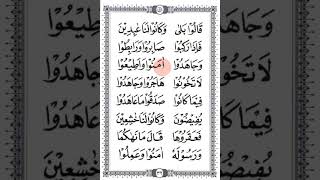 قَالُوْا بَلٰى وَكَانُوْا لَنَا عٰبِدِيْنَ
فَاِذَا رَكِبُوْا صَابِرُوْا وَرَابِطُوْا
وَجَاهَدُوْا اٰمَنُوْا وَاَطِيْعُوْا
لَا تَخُوْنُوْا هَاجَرُوْا وَجَاهَدُوْا
فِيْمَا كَانُوْا صَدَقُوْا مَا عَاهَدُوْا
يُفِيْضُوْنَ وَكَانُوْا لَنَا خٰشِعِيْنَ
فَعَقَرُوْهَا قَالَ مَا نَهٰىكُمَا
وَرَسُوْلَهٗ اٰمَنُوْا وَعَمِلُوْا